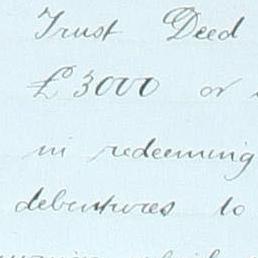 Trust Deed
£3000 or
in redeeming
debentures to